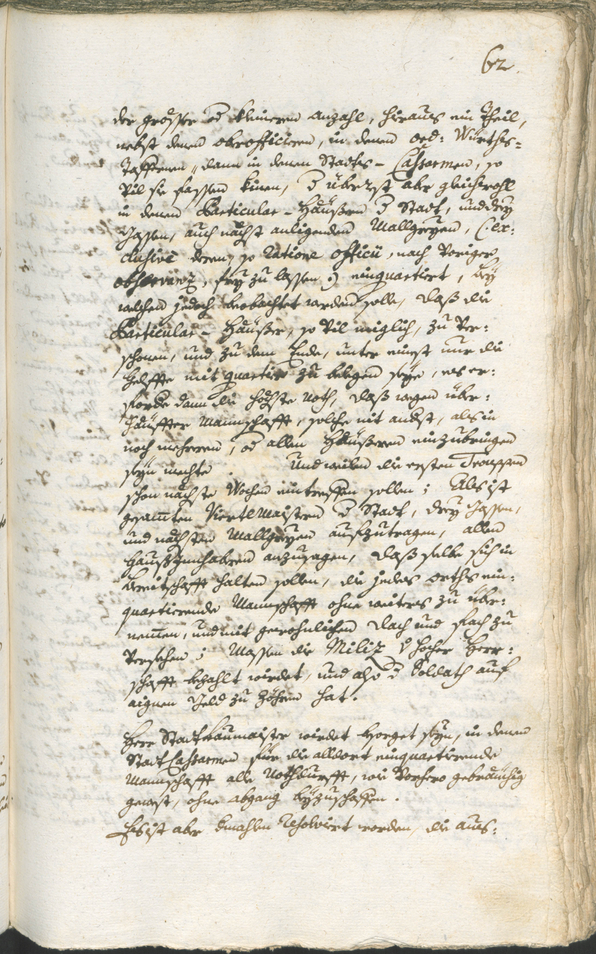 62.
der grösser od kleineren Anzahl, hieraus ein Theil,
nebst denen oberofficieren, in denen ord: Würths=
Taffernen, dann in denen Stadts-Casarmen, so
vil sie fassen kinen, d überrest aber gleichwohl
in denen Particular-Häußern d Stadt, und drey
Gassen, auch nächst anligenden Mallgreyen, (: ex:
clusive deren, so Ratione officii, nach voriger
observanz, frey zu lassen :) einquartiert, bey
welchen jedoch beobachtet werden solle, daß die
Particular-Häußer, so vil möglich, zu ver:
schonen, und zu dem Ende, unter einst nur die
helffte mit quartir zu belegen seye, es er:
fordere dann die höchste Noth, daß wegen über:
häuffter Mannschafft, solche nit anderst, als in
noch mehreren, od allen Häußeren einzubringen
seyn mechte. Und weilen die ersten Trouppen
schon nächste Wochen eintreffen sollen; Als ist
gesamten Viertlmaistern d Stadt, drey Gassen,
und nächsten Mallgreyen aufzutragen, allen
Haußinnhabern anzusagen, daß selbe sich in
Bereitschafft halten sollen, die jedes orths ein:
quartierende Mannschafft ohne weiters zu über:
nemen, und mit gewohnlichen Dach und Fach zu
versehen; Massen die Miliz v hocher Herr:
schafft bezahlt wirdet, und also d Soldath auf
aignen Geld zu zöhren hat.
Herr Stadtbaumaister wirdet besorget seyn, in denen
Stadt Casarmen für die alldort einquartierende
Mannschafft alle Nothdurfft, wie vorhero gebräuchig
gewest, ohne abgang beyzuschaffen.
Es ist aber hmahlen resolvirt worden, die aus: